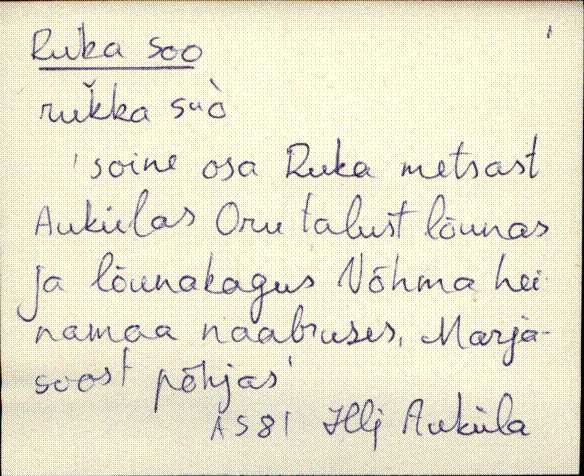 Ruka soo
rukka suò
'soine osa Ruka metsast
Aukülas Oru talust lõunas
ja lõunakagus Võhma hei-
namaa naabruses, Marja-
soost põhjas'
AS 81 Hlj Auküla